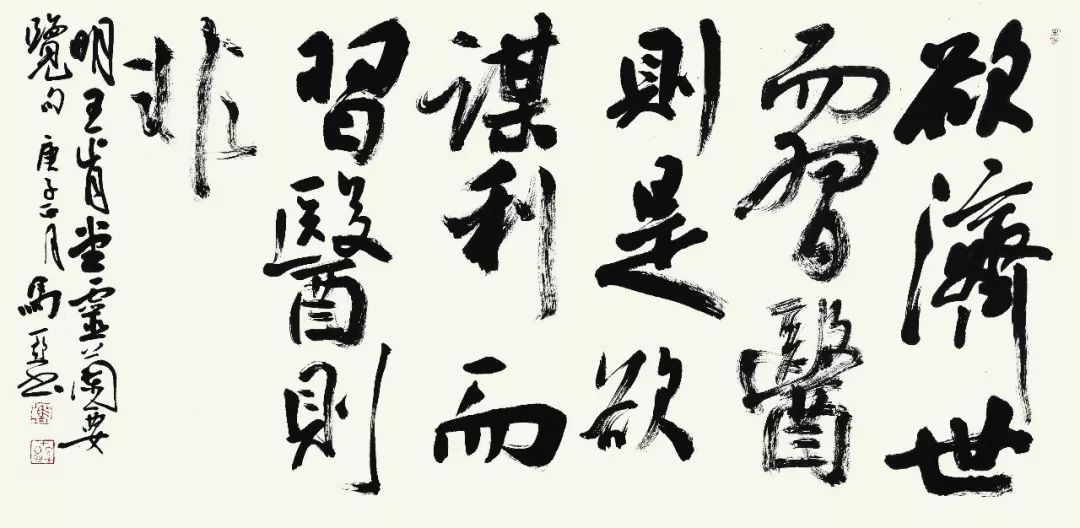 欲濟世
而習醫
則是欲
謀利而
習醫則
非
明王肯堂靈蘭要
覽句庚子四月馬亞書